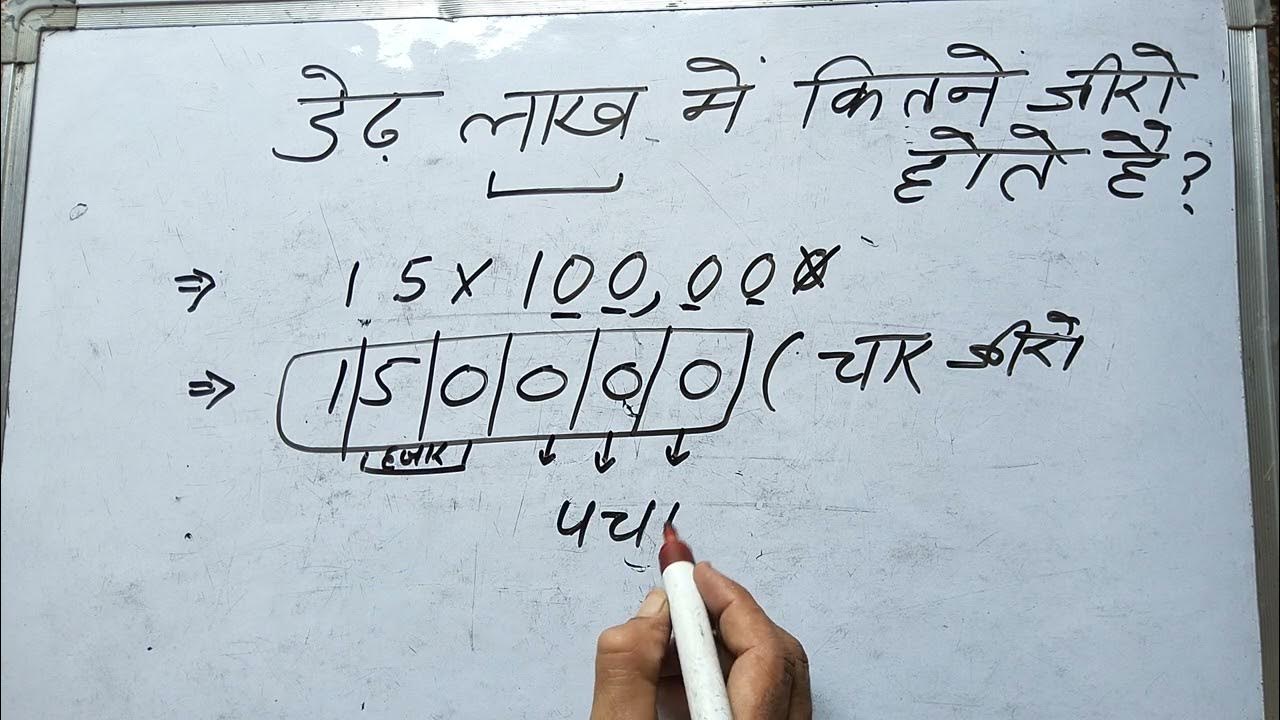 डेढ़ लाख में कितने जीरो
होते है?
⇒ 15 × 100,000
⇒ 150000 (चार जीरो
हजार
पचा